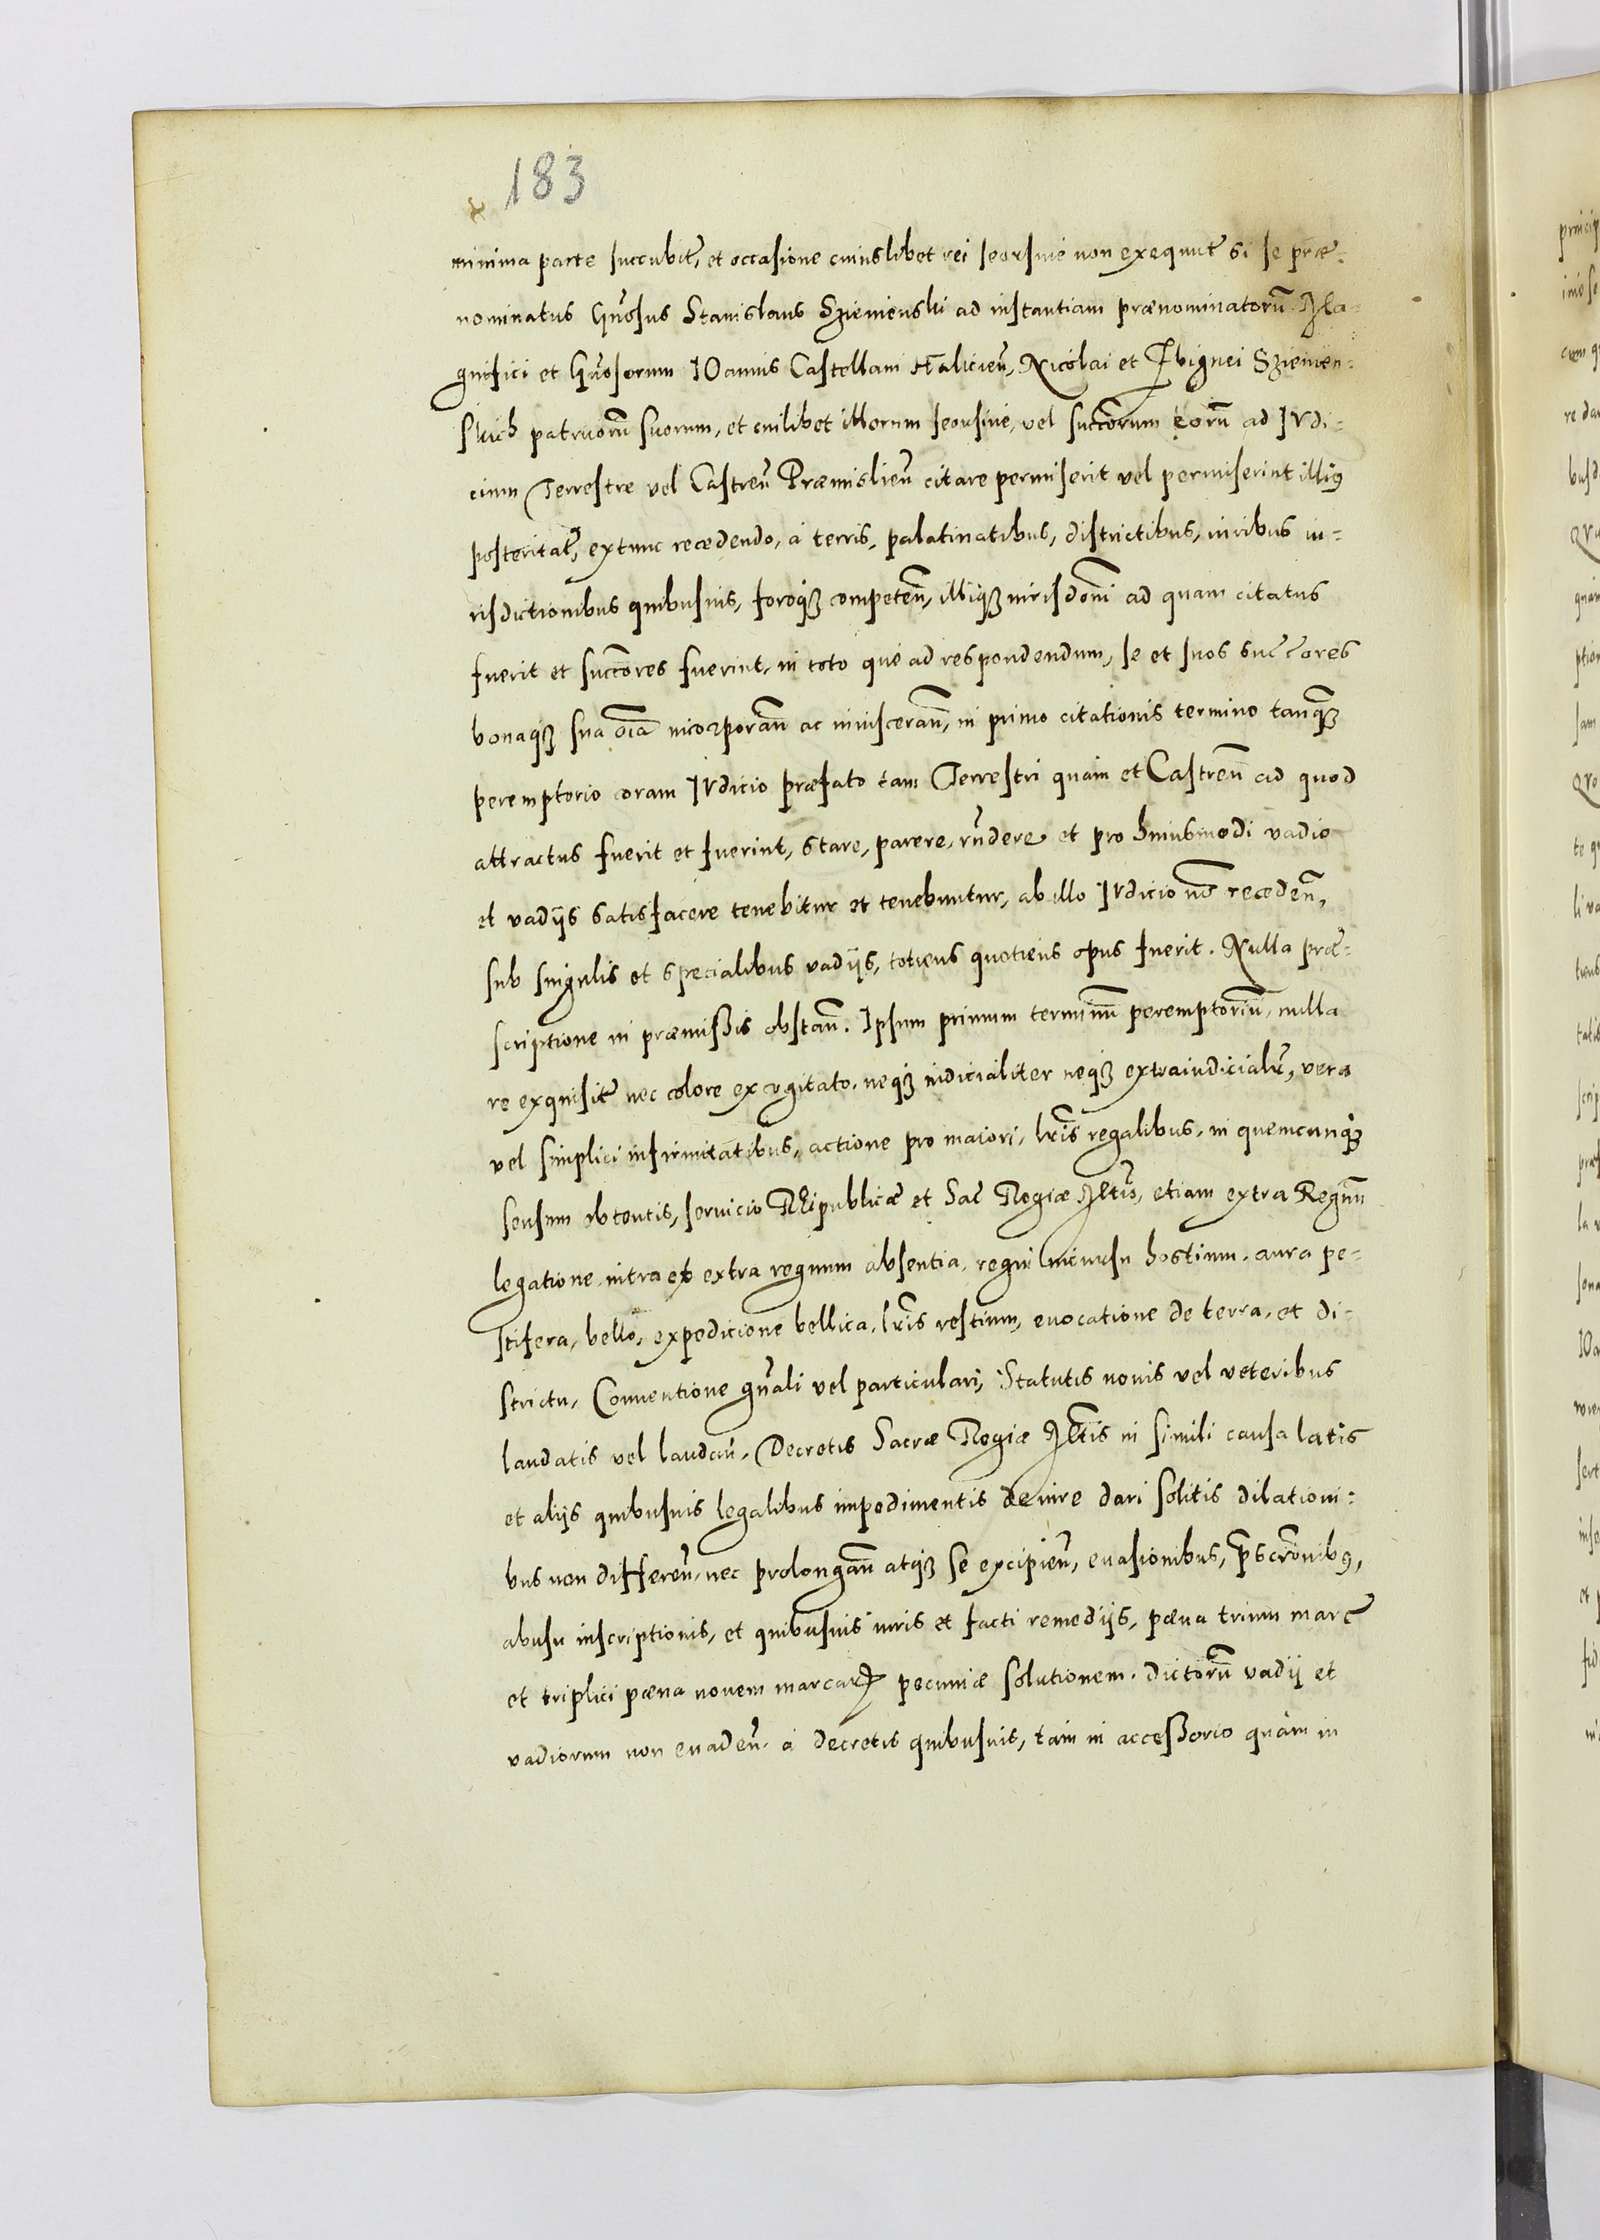 183
minima parte succubit̃, et occasione cuiuslibet rei seorsiue non exequut̃ si se præ-
nominatus Gñosus Stanislaus Szienienski ad instantiam prænominatorũ Ma-
gnifici et Gñosorum IOannis Castellani Halicieñ, Nicolai et Zbignei Szienien-
skich patruorũ suorum, et cuilibet illorum seorsiue, vel succ̃orum eorũ ad IVdi-
cium Terrestre vel Castreñ Præmislieñ citare permiserit vel permiserint illiꝰ
posteritat̃, extunc recedendo, à terris, palatinatibus, districtibus, iuribus iu-
risdictionibus quibusuis, foroqȝ competeñ, illiqȝ iurisdoñi ad quam citatus
fuerit et succ̃ores fuerint, in toto que ad respondendum, se et suos succ̃ores
bonaqȝ sua oĩa incorporañ ac inuiscerañ, in primo citationis termino tanqȝ
peremptorio coram IVdicio præfato tam Terrestri quam et Castreñ ad quod
attractus fuerit et fuerint, stare, parere, rñdere et pro huiusmodi vadio
et vadijs satisfacere tenebitur et tenebuntur, ab illo IVdicio nõ recedeñ,
sub singulis et specialibus vadijs, totiens quotiens opus fuerit. Nulla præ-
scriptione in præmissis obstañ. Ipsum primum terminũ peremptoriũ, nulla
re exquisit̃ nec colore excogitato, neqȝ iudicialiter neqȝ extraiudicialit̃, vera
vel simplici infirmitatibus, actione pro maiori, lr̃is regalibus, in quemcunqȝ
sensum obtentis, seruicio REipublicæ et Sac̃ Regiæ Mtis, etiam extra Regnũ
legatione, intra et extra regnum absentia, regni incursu hostium, aura pe-
stifera, bello, expedicione bellica, lr̃is restium, euocatione de terra, et di-
strictu, Conuentione gñali vel particulari, Statutis nouis vel veteribus
laudatis vel laudañ, Decretis Sacræ Regiæ Mtis in simili causa latis
et alijs quibusuis legalibus impedimentis de iure dari solitis dilationi-
bus non differeñ, nec prolongañ atqȝ se excipieñ, euasionibus, p̃scr̃onibꝰ,
abusu inscriptionis, et quibusuis iuris et facti remedijs, pæna trium marc̃
et triplici pæna nouem marcarꝝ pecuniæ solutionem, dictorũ vadij et
vadiorum non euadeñ, à decretis quibusuis, tam in accessorio quàm in